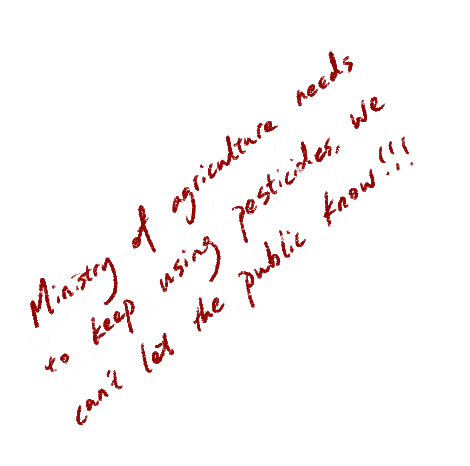 Ministry of agriculture needs
to keep using pesticides, we
can't let the public know!!!